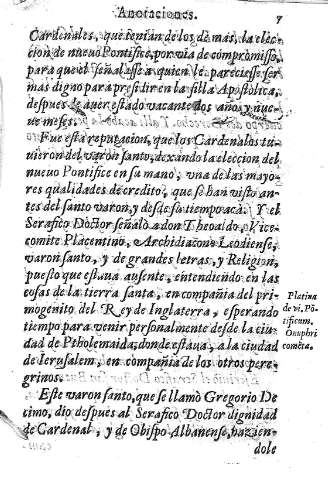 Anotaciones. 7
Cardenales, que tenían de los demas, la elec-
cion de nueuo Pontifice, por via de compromisso,
para que el señalasse a quien le pareciesse ser
mas digno para presidir en la silla Apostolica,
despues de auer estado vacante dos años, y nue-
ue meses.
Fue esta reputacion, que los Cardenales tu-
uieron del varon santo, dexando la eleccion del
nueuo Pontifice en su mano, vna de las mayo-
res qualidades de credito, que se han visto an-
tes del santo varon, y desde su tiempo acà. Y el
Serafico Doctor señalò a don Theoaldo, Vice-
comite Placentino, Archidiacono Leodiense,
varon santo, y de grandes letras, y Religion,
puesto que estaua ausente, entendiendo en las
cosas de la tierra santa, en compañia del pri-
mogenito del Rey de Inglaterra, esperando
tiempo para venir personalmente desde la ciu-
dad de Ptholemaida, donde estaua, a la ciudad
de Ierusalem, en compañia de los otros pere-
grinos.
Platina
de vi. Põ-
tificum.
Onuphri
comẽta.
Este varon santo, que se llamò Gregorio De
cimo, dio despues al Serafico Doctor dignidad
de Cardenal, y de Obispo Albanense, hazien-
dole